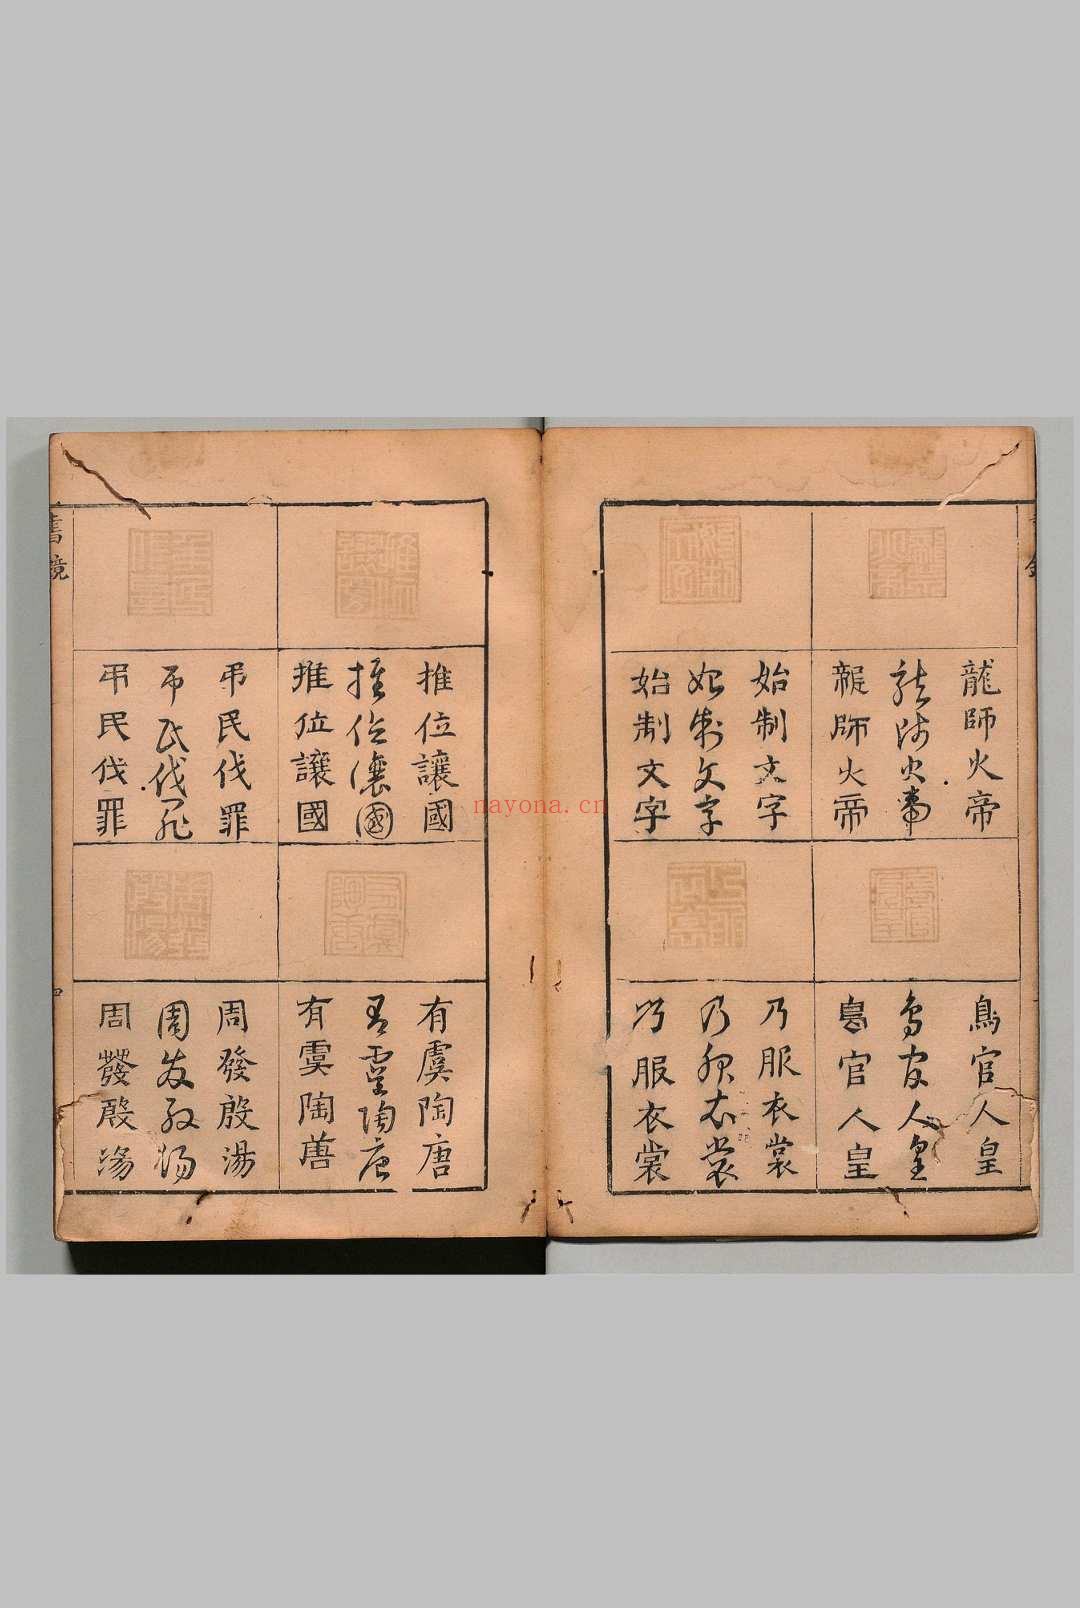 龍師火帝
龍師火帝
龍師火帝
鳥官人皇
鳥官人皇
鳥官人皇
始制文字
始制文字
始制文字
乃服衣裳
乃服衣裳
乃服衣裳
推位讓國
推位讓國
推位讓國
有虞陶唐
有虞陶唐
有虞陶唐
弔民伐罪
弔民伐罪
弔民伐罪
周發殷湯
周發殷湯
周發殷湯
書鏡
四
nayona.cn